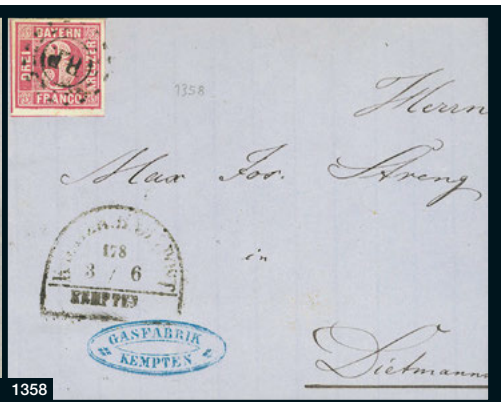 BAYERN
DREI
KREUZER
FRANCO
1358
Herrn
Max Jos. Streng
in
178
3 / 6
KEMPTEN
GASFABRIK
KEMPTEN
Dietmanns
1358